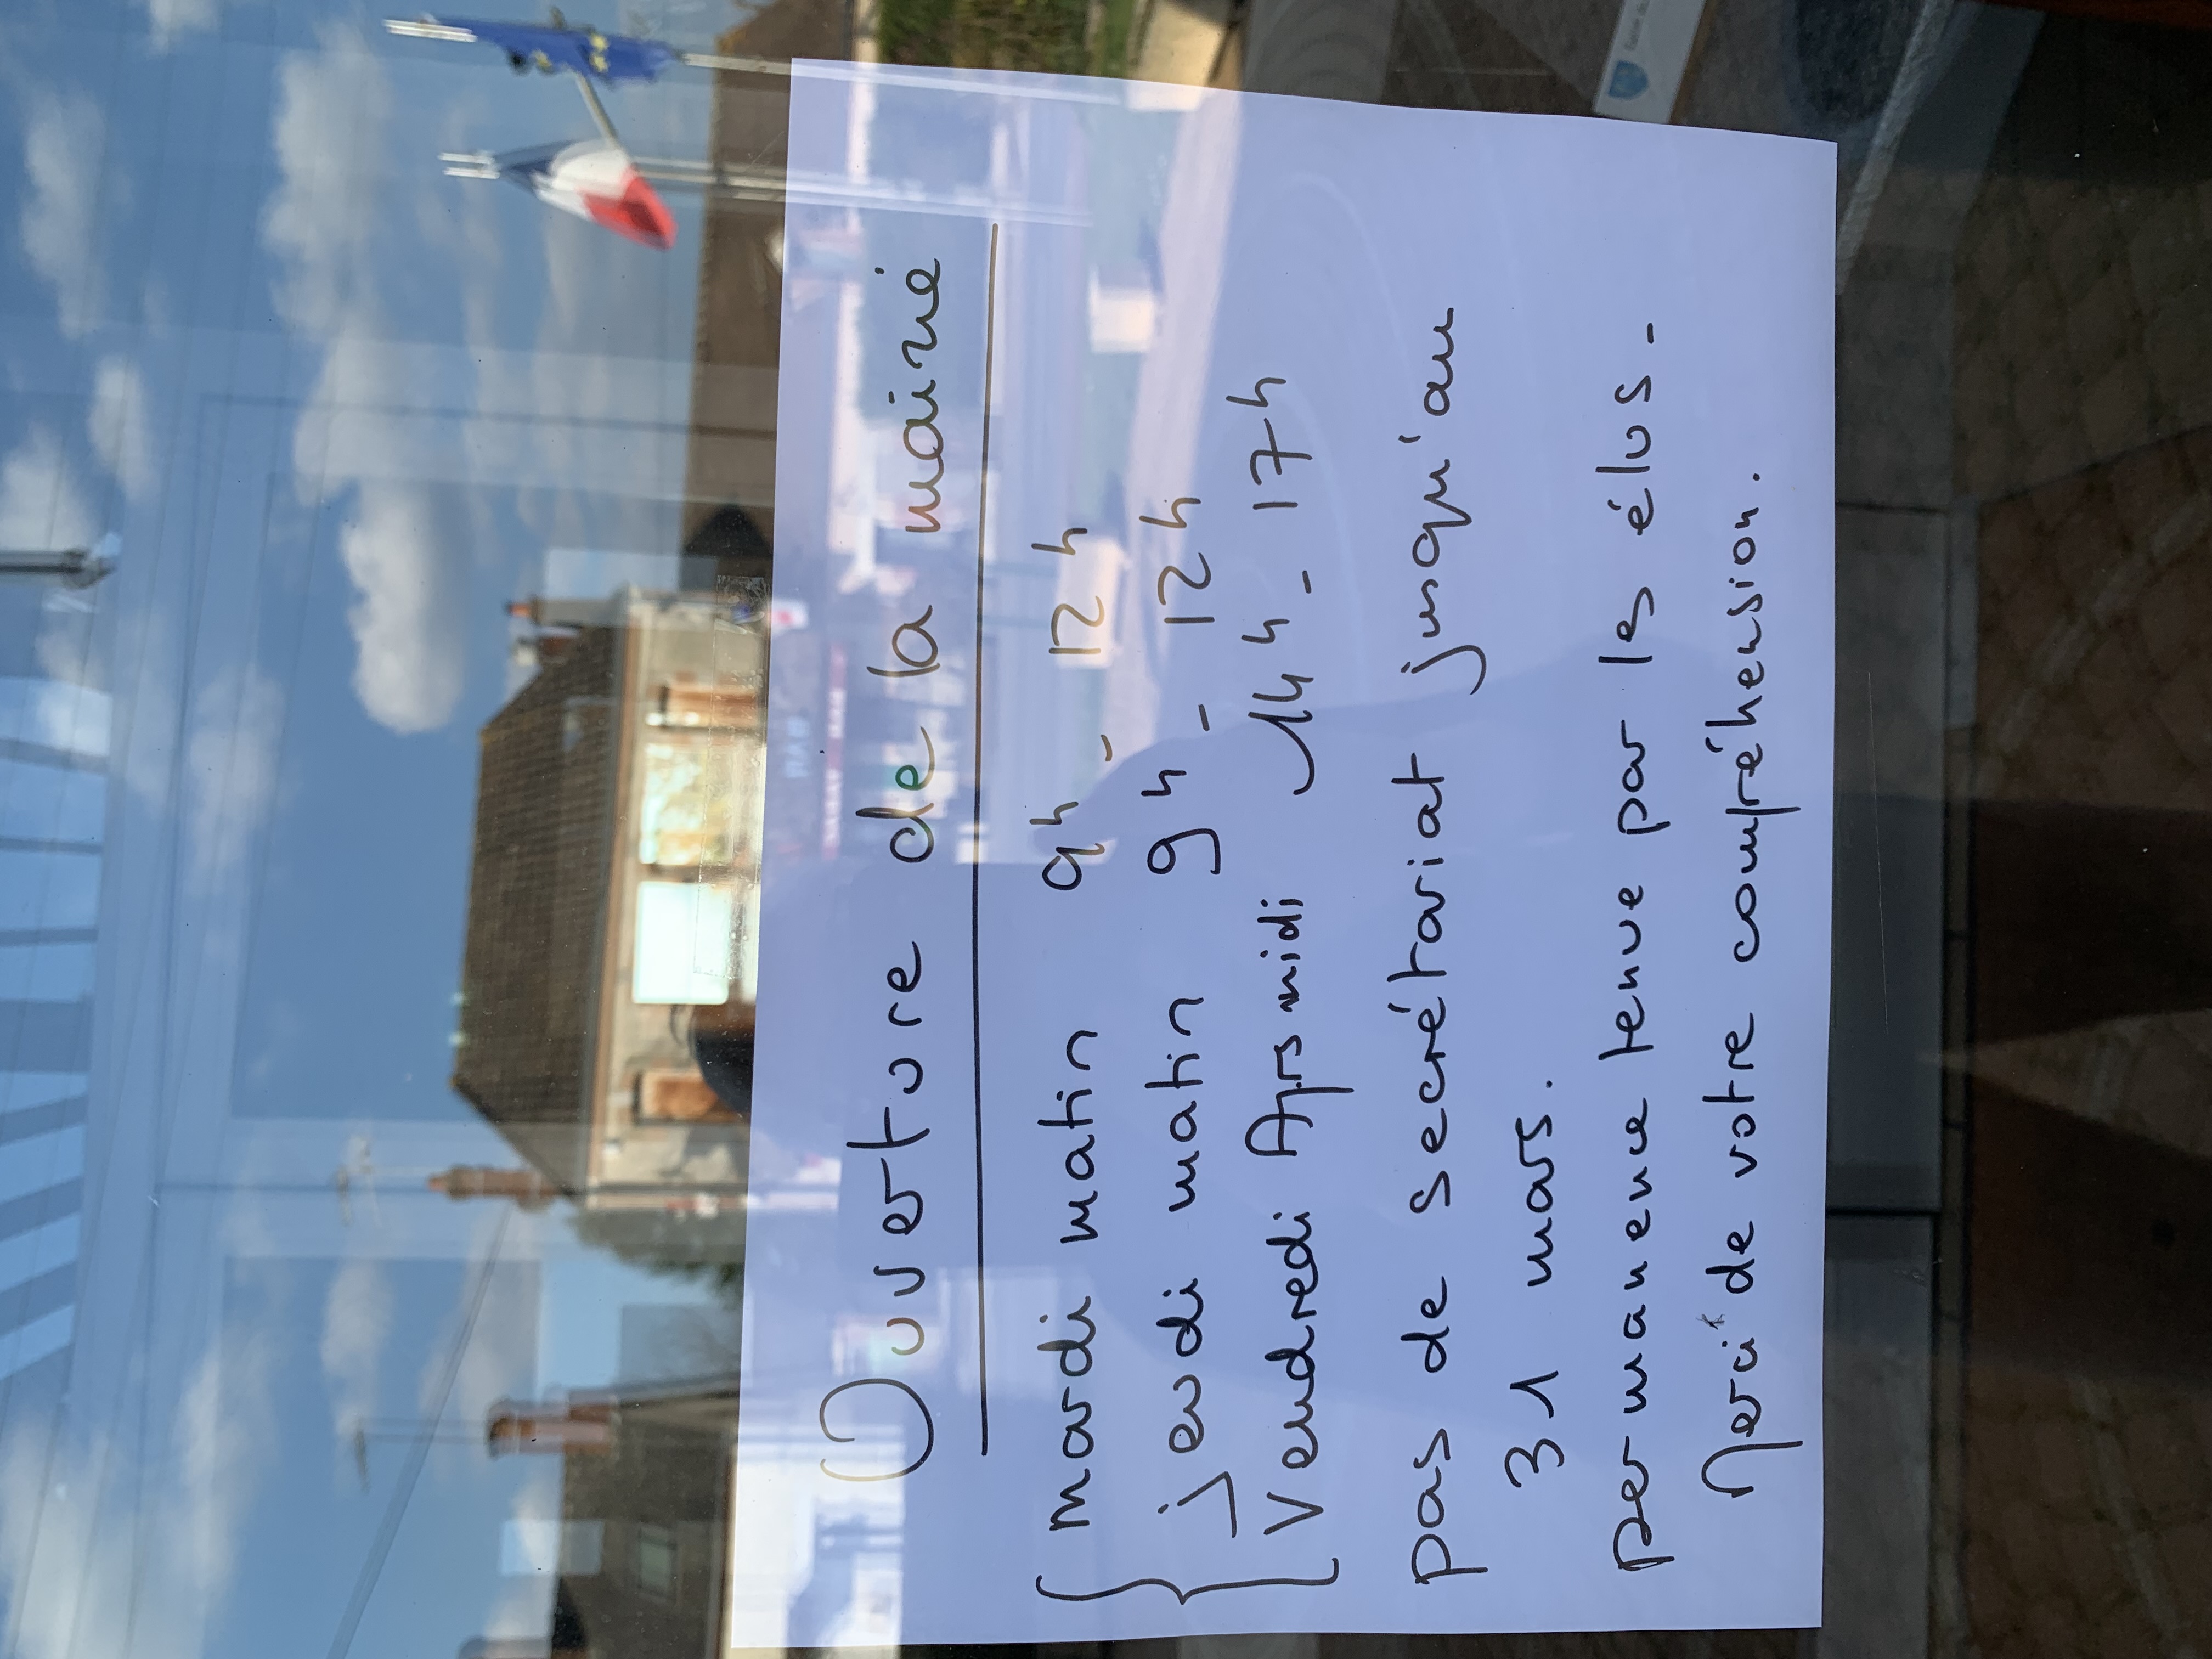 Ouverture de la mairie
mardi matin 9h - 12h
jeudi matin 9h - 12h
Vendredi Aprs midi 14h - 17h
pas de secrétariat jusqu'au
31 mars.
permanence tenue par les élus -
Merci de votre compréhension.